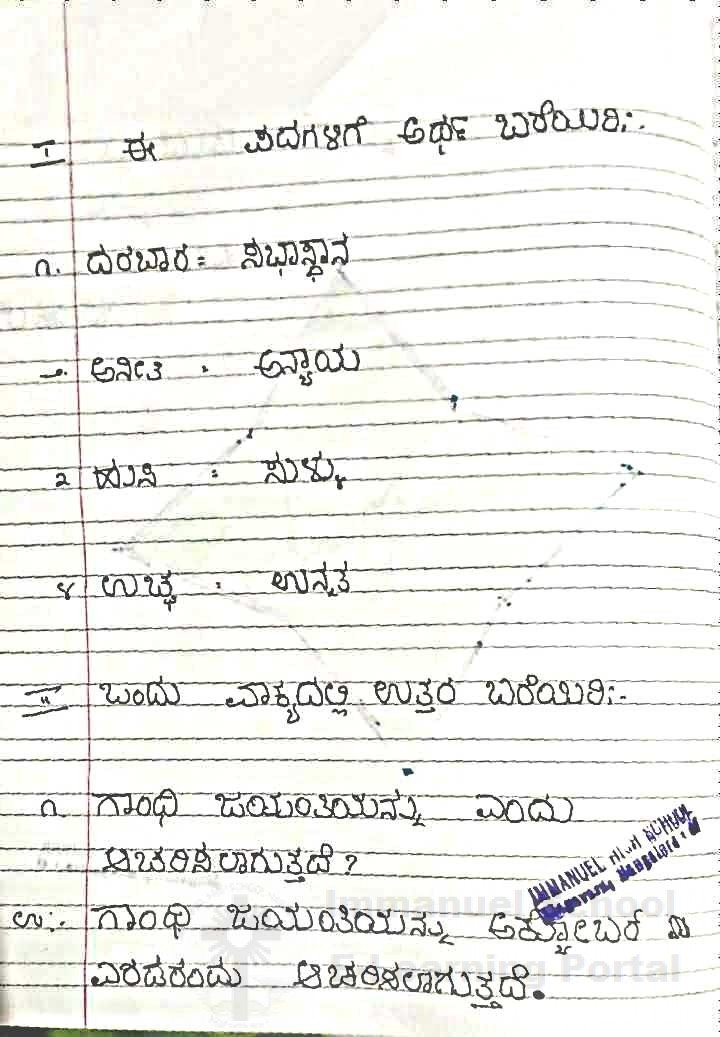 I ಈ ಪದಗಳಿಗೆ ಅರ್ಥ ಬರೆಯಿರಿ:-
೧. ದರಬಾರ : ಸಭಾಸ್ಥಾನ
೨. ಅನೀತಿ : ಅನ್ಯಾಯ
೩ ಹುಸಿ : ಸುಳ್ಳು
೪ ಉಚ್ಛ : ಉನ್ನತ
II ಒಂದು ವಾಕ್ಯದಲ್ಲಿ ಉತ್ತರ ಬರೆಯಿರಿ:-
೧ ಗಾಂಧಿ ಜಯಂತಿಯನ್ನು ಎಂದು
ಆಚರಿಸಲಾಗುತ್ತದೆ?
IMMANUEL HIGH SCHOOL
ಉ:- ಗಾಂಧಿ ಜಯಂತಿಯನ್ನು ಅಕ್ಟೋಬರ
Immanuel School
ಎರಡರಂದು ಆಚರಿಸಲಾಗುತ್ತದೆ.
E-Learning Portal